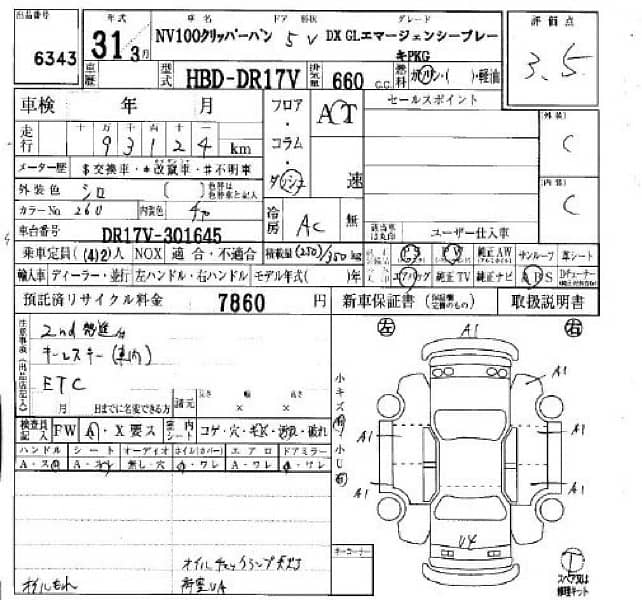 出品番号
6343
年式
31 3月
車名
NV100クリッパーバン
ドア 形状
5 V
グレード
DX GLエマージェンシーブレーキPKG
評価点
3.5
車歴
型式
HBD-DR17V
排気量
660 C.C.
燃料
ガソリン・( )・軽油
車検 年 月
フロア・コラム・ダッシュ
AT
速
セールスポイント
(外装)
C
(内装)
C
走行
十 万 千 百 十 一
93124 km
メーター歴
$交換車・*改竄車・#不明車
外装色
シロ
( )
色替は色替車と記入
カラーNo
26U
内装色
冷房
AC
無
該当車は丸印
ユーザー仕入車
車台番号
DR17V-301645
乗車定員(4)2)人
NOX
適合・不適合
積載量(250)/350kg
純正AW
サンルーフ
革シート
輸入車
ディーラー・並行
左ハンドル・右ハンドル
モデル年式( )年
エアバッグ
純正TV
純正ナビ
ABS
預託済リサイクル料金
7860 円
新車保証書
取扱説明書
注意事項(出品店記入)
キーレスキー(車内)
ETC
月 日までに名変できる方
諸元
長さ × 幅 × 高さ
左
A1
右
小キズ有・小U有
検査員記入
FW
A・X要ス
室内シート
コゲ・穴・キズ・汚れ・破れ
ハンドル
シート
オーディオ
ホイル(カバー)
エアロ
ドアミラー
A・ス
無し・穴
A・ワレ
A・ワレ
A・ワレ
A1
A1
A1
A1
A1
U4
オイルもれ
オイルチェックランプ点灯
荷室UA
キーコーナー
T
スペア又は修理キット